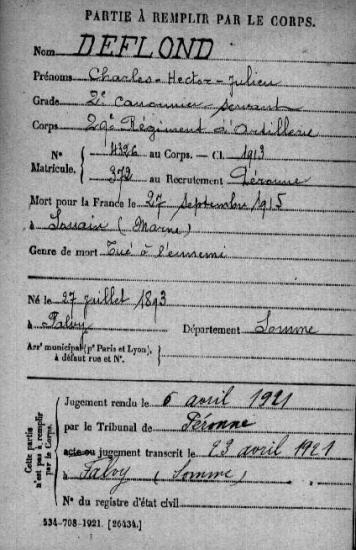 PARTIE À REMPLIR PAR LE CORPS.
Nom DEFLOND
Prénoms Charles-Hector-Julien
Grade 2e canonnier-servant
Corps 29e Régiment d'Artillerie
N° Matricule. 4326 au Corps. — Cl. 1913
372 au Recrutement Péronne
Mort pour la France le 27 septembre 1915
à Souain (Marne)
Genre de mort Tué à l'ennemi
Né le 27 juillet 1893
à Falvy Département Somme
Arrt municipal (pr Paris et Lyon), à défaut rue et N°.
Cette partie n'est pas à remplir par le Corps.
Jugement rendu le 6 avril 1921
par le Tribunal de Péronne
acte ou jugement transcrit le 23 avril 1921
à Falvy (Somme)
N° du registre d'état civil
534-708-1921. [26434.]